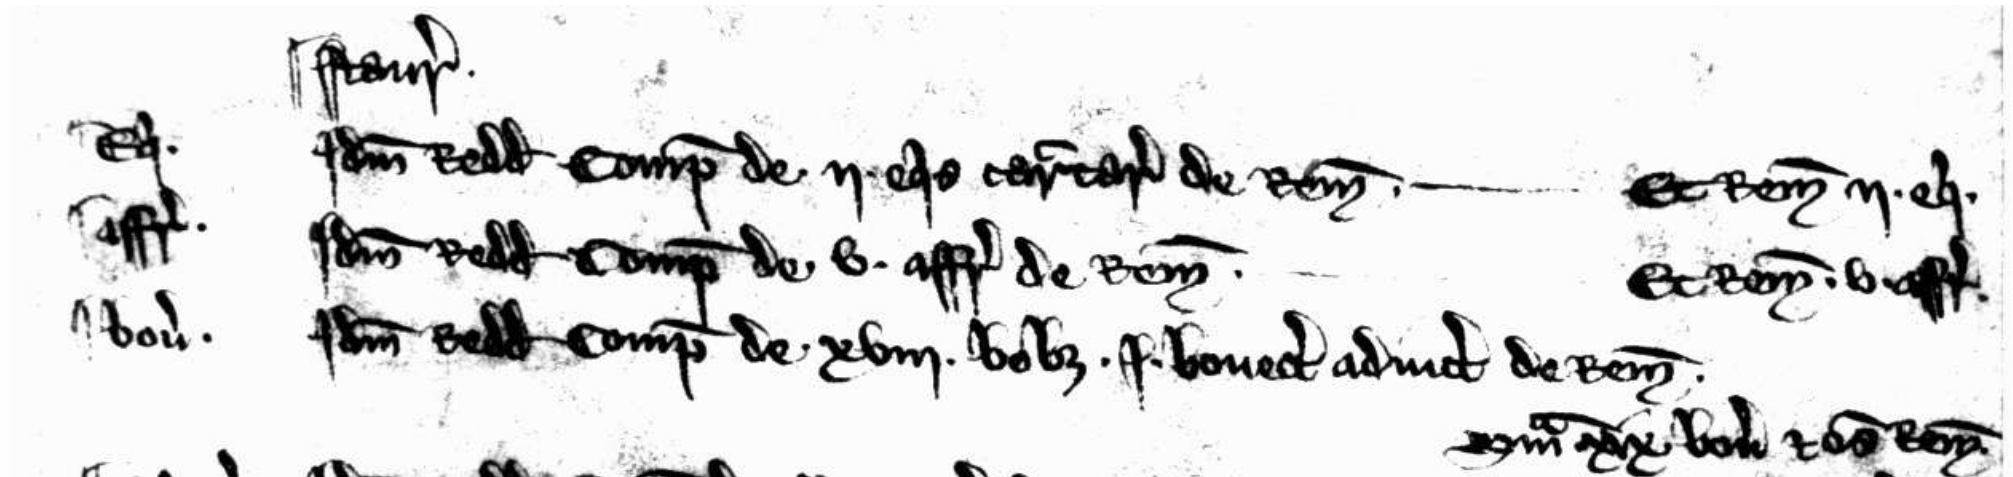 Staur'.
Eq'. Idm Redd Comp de .ij. eqis cartar' de Rem. Et Rem ij. eq'.
affr'. Idm Redd Comp de .v. affr' de Rem. Et Rem .v. affr'.
bou'. Idm Redd Comp de .xviij. bobȝ. j. bouect' adiuct' de Rem.
Sma xix bou' ⁊ oes Rem.